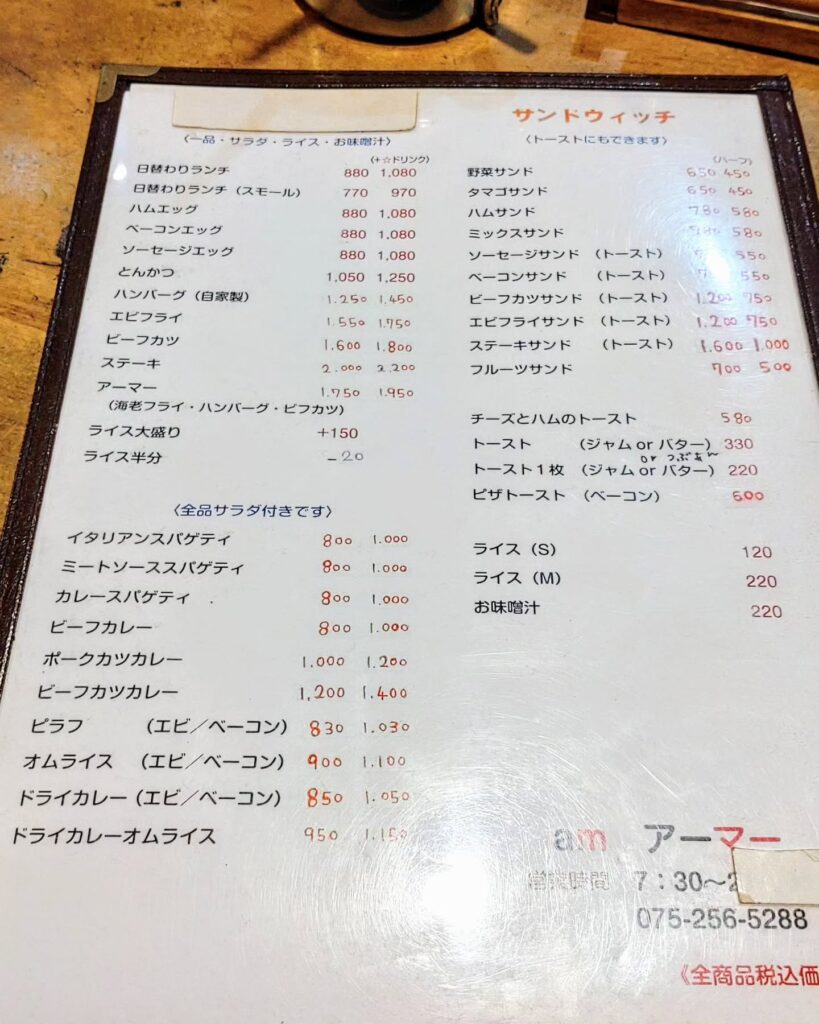 〈一品・サラダ・ライス・お味噌汁〉
(+☆ドリンク)
日替わりランチ 880 1,080
日替わりランチ（スモール） 770 970
ハムエッグ 880 1,080
ベーコンエッグ 880 1,080
ソーセージエッグ 880 1,080
とんかつ 1,050 1,250
ハンバーグ（自家製） 1.250 1,450
エビフライ 1.550 1.750
ビーフカツ 1.600 1.800
ステーキ 2.000 2.200
アーマー 1.750 1.950
（海老フライ・ハンバーグ・ビフカツ）
ライス大盛り +150
ライス半分 -20
〈全品サラダ付きです〉
イタリアンスパゲティ 800 1.000
ミートソーススパゲティ 800 1.000
カレースパゲティ 800 1.000
ビーフカレー 800 1.000
ポークカツカレー 1.000 1.200
ビーフカツカレー 1,200 1.400
ピラフ （エビ／ベーコン） 830 1.030
オムライス （エビ／ベーコン） 900 1.100
ドライカレー（エビ／ベーコン） 850 1.050
ドライカレーオムライス 950 1.150
サンドウィッチ
〈トーストにもできます〉
(ハーフ)
野菜サンド 650 450
タマゴサンド 650 450
ハムサンド 780 580
ミックスサンド 580
ソーセージサンド （トースト） 550
ベーコンサンド （トースト） 550
ビーフカツサンド （トースト） 1.200 750
エビフライサンド （トースト） 1.200 750
ステーキサンド （トースト） 1.600 1.000
フルーツサンド 700 500
チーズとハムのトースト 580
トースト （ジャム or バター） 330
or つぶあん
トースト１枚 （ジャム or バター） 220
ピザトースト （ベーコン） 600
ライス（S） 120
ライス（M） 220
お味噌汁 220
am アーマー
営業時間 7：30～
075-256-5288
《全商品税込価